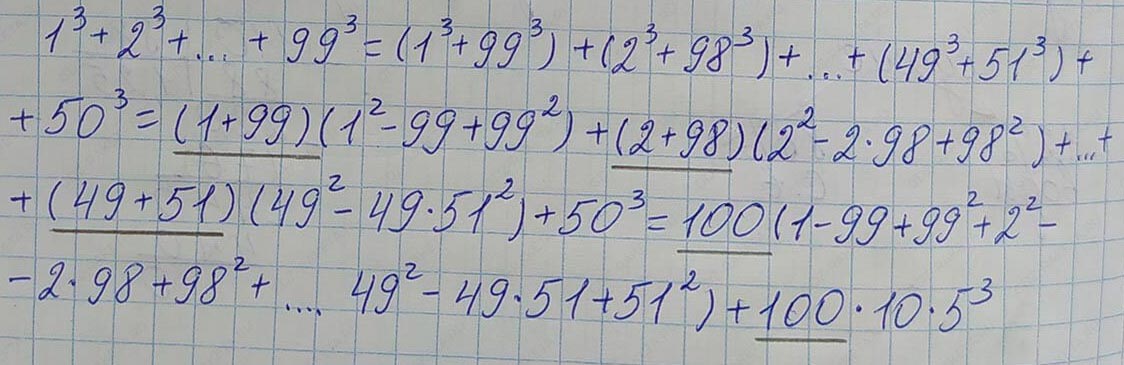 1³ + 2³ + ... + 99³ = (1³ + 99³) + (2³ + 98³) + ... + (49³ + 51³) +
+ 50³ = (1 + 99)(1² - 99 + 99²) + (2 + 98)(2² - 2·98 + 98²) + ... +
+ (49 + 51)(49² - 49·51²) + 50³ = 100(1 - 99 + 99² + 2² -
- 2·98 + 98² + .... 49² - 49·51 + 51²) + 100·10·5³